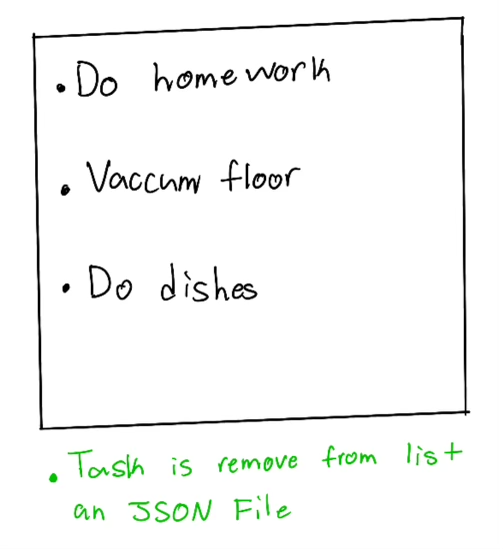 • Do homework
• Vaccum floor
• Do dishes
• Task is remove from list
an JSON File